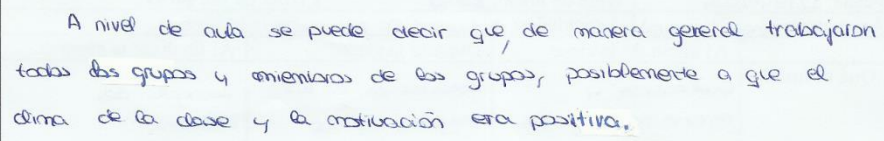 A nivel de aula se puede decir que, de manera general trabajaron
todos los grupos y miembros de los grupos, posiblemente a que el
clima de la clase y la motivación era positiva.